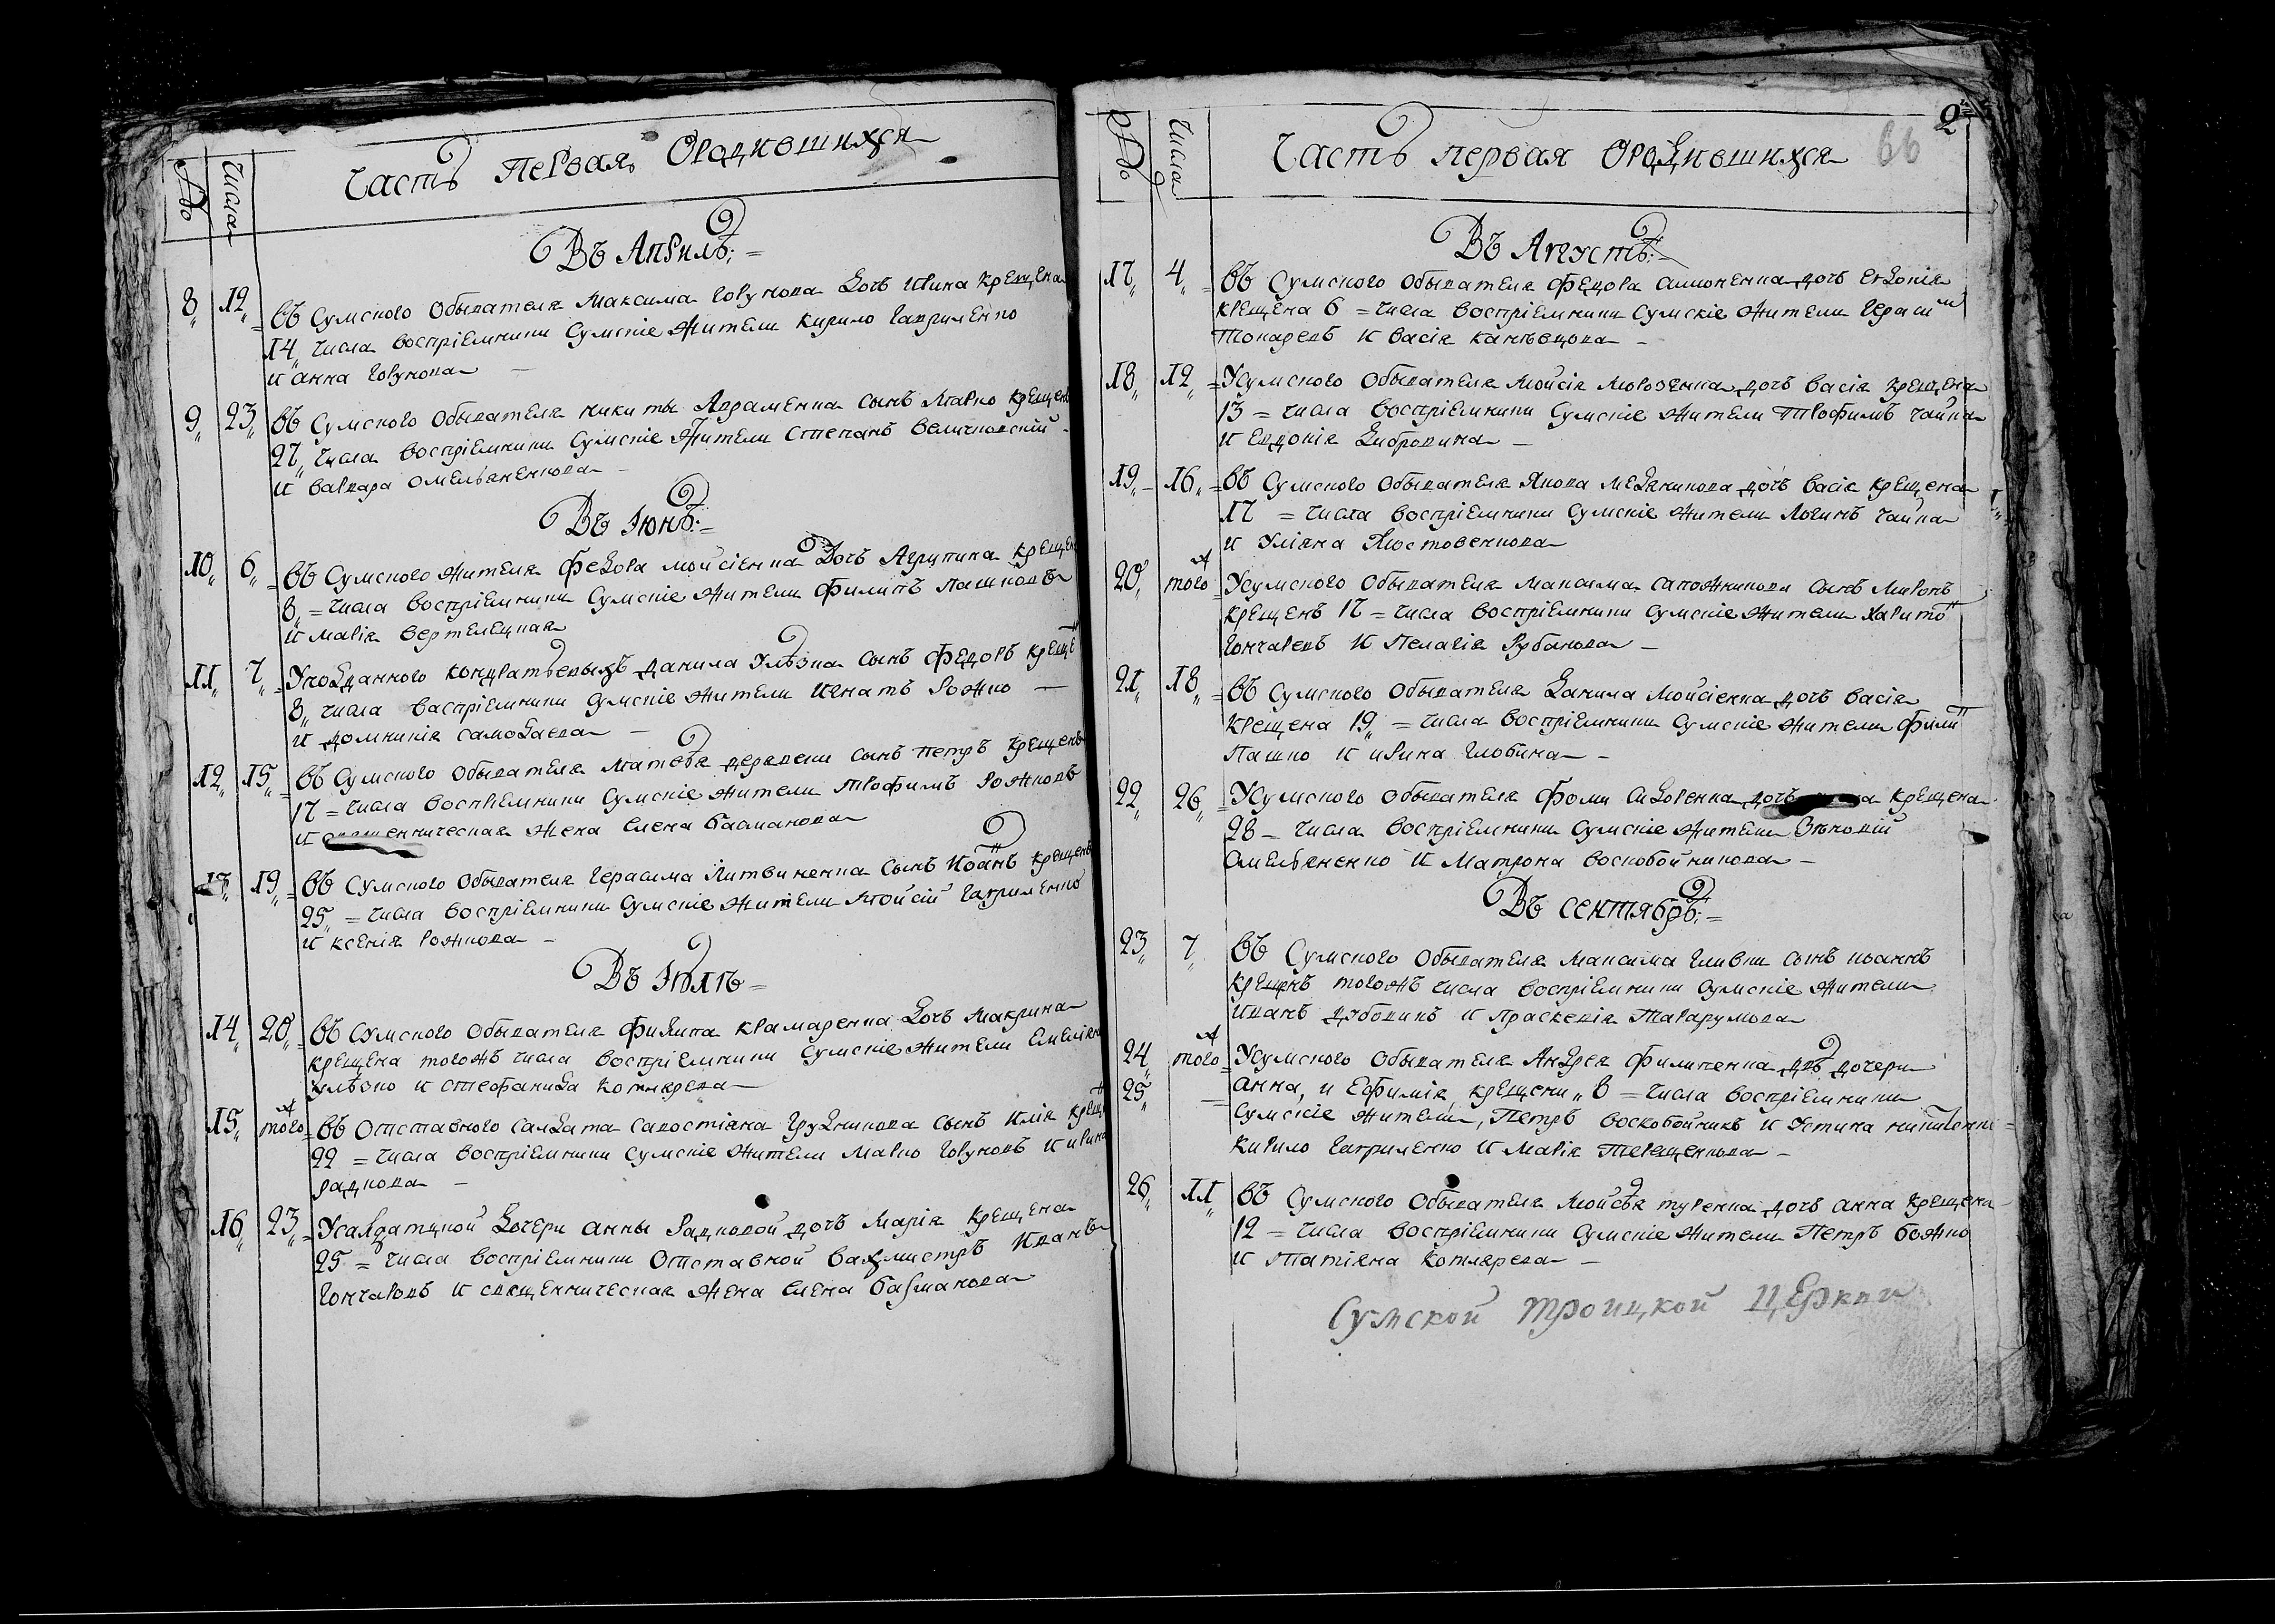 Часть первая Ородившихся
№
Числа
Въ Априлѣ:=
8 12 въ Сумского Обывателя Максима Горунова дочь Ирина крещена
14 числа воспріемники Сумскіе Жители Кирило Гавриленко
и анна Горунова
9 23 въ Сумского Обывателя никиты Авраменка сынъ Марко крещенъ
27 числа воспріемники Сумскіе Жители Степанъ Величковскій
и варвара омельяненкова
Въ Іюнѣ:=
10 6 въ Сумского жителя Федора мойсіенка дочь Агрипина крещен
8 = числа воспріемники Сумскіе жители Филипъ Пашковъ
и марія вертелецкая
11 7 Уподданного кондратьевыхъ данила Улѣзка сынъ Федоръ креще
8 числа васпріемники Сумскіе жители Игнатъ Рожко
и домникія самодаева
12 15 въ Сумского Обывателя Матвѣя деравски сынъ петръ крещенъ
17 = числа воспріемники Сумскіе жители Трофимъ Рожковъ
и священническая жена Елена басманова
13 19 въ Сумского Обывателя Герасима Литвиненка сынъ Иоанъ крещенъ
25 = числа воспріемники Сумскіе жители Мойсій Гавриленко
и ксенія рожкова
Въ Іюлѣ=
14 20 въ Сумского Обывателя Филипа крамаренка дочь Макрина
крещена тогожъ числа воспріемники Сумскіе жители Емеліянъ
улѣзко и стефанида котлярева
15 того въ Отставного салдата савостіяна Грудникова сынъ Илія крещ
22 = числа воспріемники Сумскіе жители Марко Горуновъ и ирина
радкова
16 23 Усалдатцкой дочери анны Радковой дочь Марія крещена
25 = числа воспріемники Отставной вахмистръ Иванъ
Гончаровъ и священническая жена Елена басманова
2
Часть первая Ородившихся 66
№
Числа
Въ Августѣ:=
17 4 въ Сумского Обывателя Федора симоненка дочь Евдокія
крещена 6 = числа воспріемники Сумскіе жители Герасим
Токаревъ и васія канѣвцова
18 12 Усумского Обывателя Мойсія Морозенка дочь васія крещена
13 = числа воспріемники Сумскіе жители Трофимъ чайка
и Евдокія Бибродина
19 16 въ Сумского Обывателя Якова медяникова дочь васія крещена
17 = числа воспріемники Сумскіе жители Логинъ чайка
и Уліяна Мостовенкова
20 того Усумского Обывателя Максима сапожникова сынъ Миронъ
крещенъ 17 = числа воспріемники Сумскіе жители Харитон
Гончаревъ и Пелагія Рубанова
21 18 въ Сумского Обывателя данила Мойсіенка дочь васія
крещена 19 = числа воспріемники Сумскіе жители Филип
Пашко и ирина Глобина
22 26 Усумского Обывателя Фоми сидоренка дочь крещена
28 = числа воспріемники Сумскіе жители Зѣновій
Омельяненко и Матрона воскобойникова
Въ сентябрѣ:=
23 7 въ Сумского Обывателя Максима Гливки сынъ иоаннъ
крещенъ тогожъ числа воспріемники Сумскіе жители
иванъ дубовикъ и Праскевія Тавармова
24 того Усумского Обывателя Андрея Филипенка двѣ дочери
25 анна, и Ефимія крещени 8 = числа воспріемники
Сумскіе жители, Петръ воскобойникъ и Устина
Кирило Гавриленко и Марія Терещенкова
26 11 въ Сумского Обывателя Мойсѣя туренка дочь анна крещена
12 = числа воспріемники Сумскіе жители Петръ божко
и Татіяна Котлярева
Сумской троицкой церкви